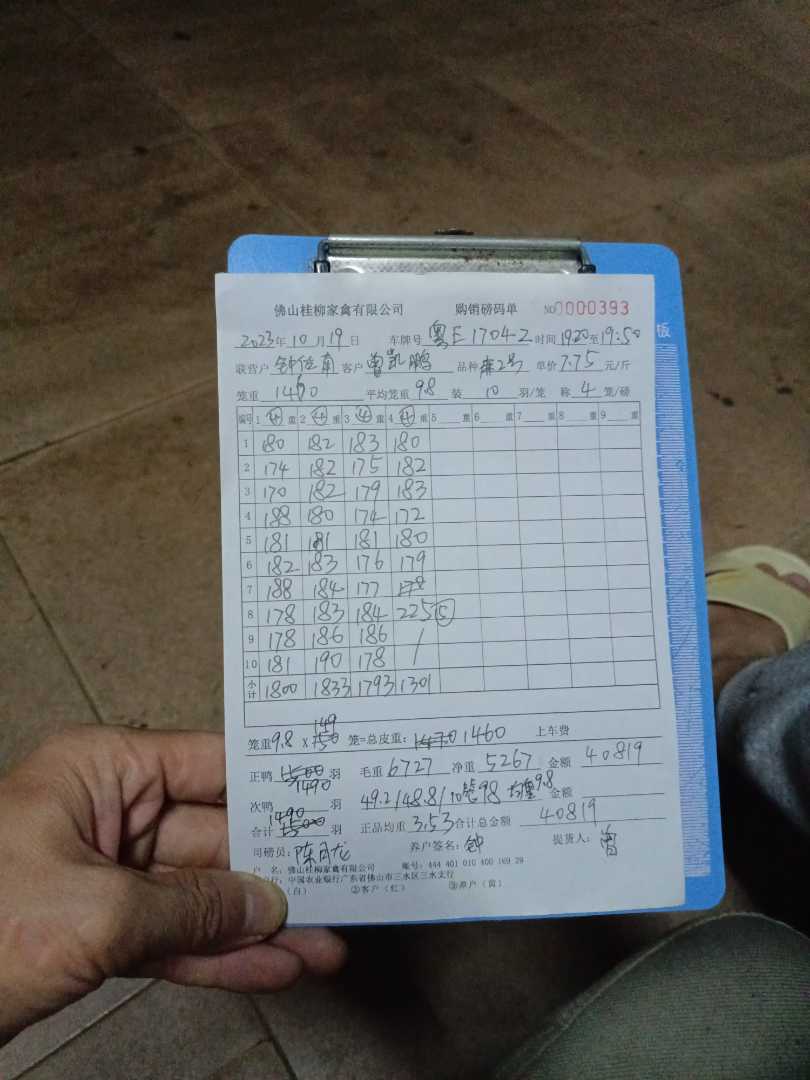 佛山桂柳家禽有限公司 购销磅码单 NO 0000393
2023年10月19日 车牌号 粤E17042 时间 1920至19:50
联营户 钟伍有 客户 曾凯鹏 品种 麻2号 单价 7.75 元/斤
笼重 1460 平均笼重 9.8 装 10 羽/笼 称 4 笼/磅
编号 1 4 重 2 4 重 3 4 重 4 4 重 5 重 6 重 7 重 8 重 9 重
1 180 182 183 180
2 174 182 175 182
3 170 182 179 183
4 188 180 174 172
5 181 181 181 180
6 182 183 176 179
7 188 184 177
8 178 183 184 225 ⑤
9 178 186 186 /
10 181 190 178 /
小计 1800 1833 1793 1301
149
笼重 9.8 X 150 笼=总皮重: 1470 1460 上车费
正鸭 1500 羽 毛重 6727 净重 5267 金额 40819
1490
次鸭 羽 49.2/48.8/10笼98 均重9.8 金额
1490
合计 1500 羽 正品均重 3.53 合计总金额 40819
司磅员: 陈 龙 养户签名: 钟 提货人: 曾
户 名: 佛山桂柳家禽有限公司 账号: 444 401 010 400 169 29
行: 中国农业银行广东省佛山市三水区三水支行
(白) ②客户(红) ③养户(黄)
板